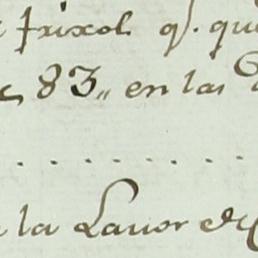 frixol q. que
83,, en las
. . . . . . . . .
la Lavor de